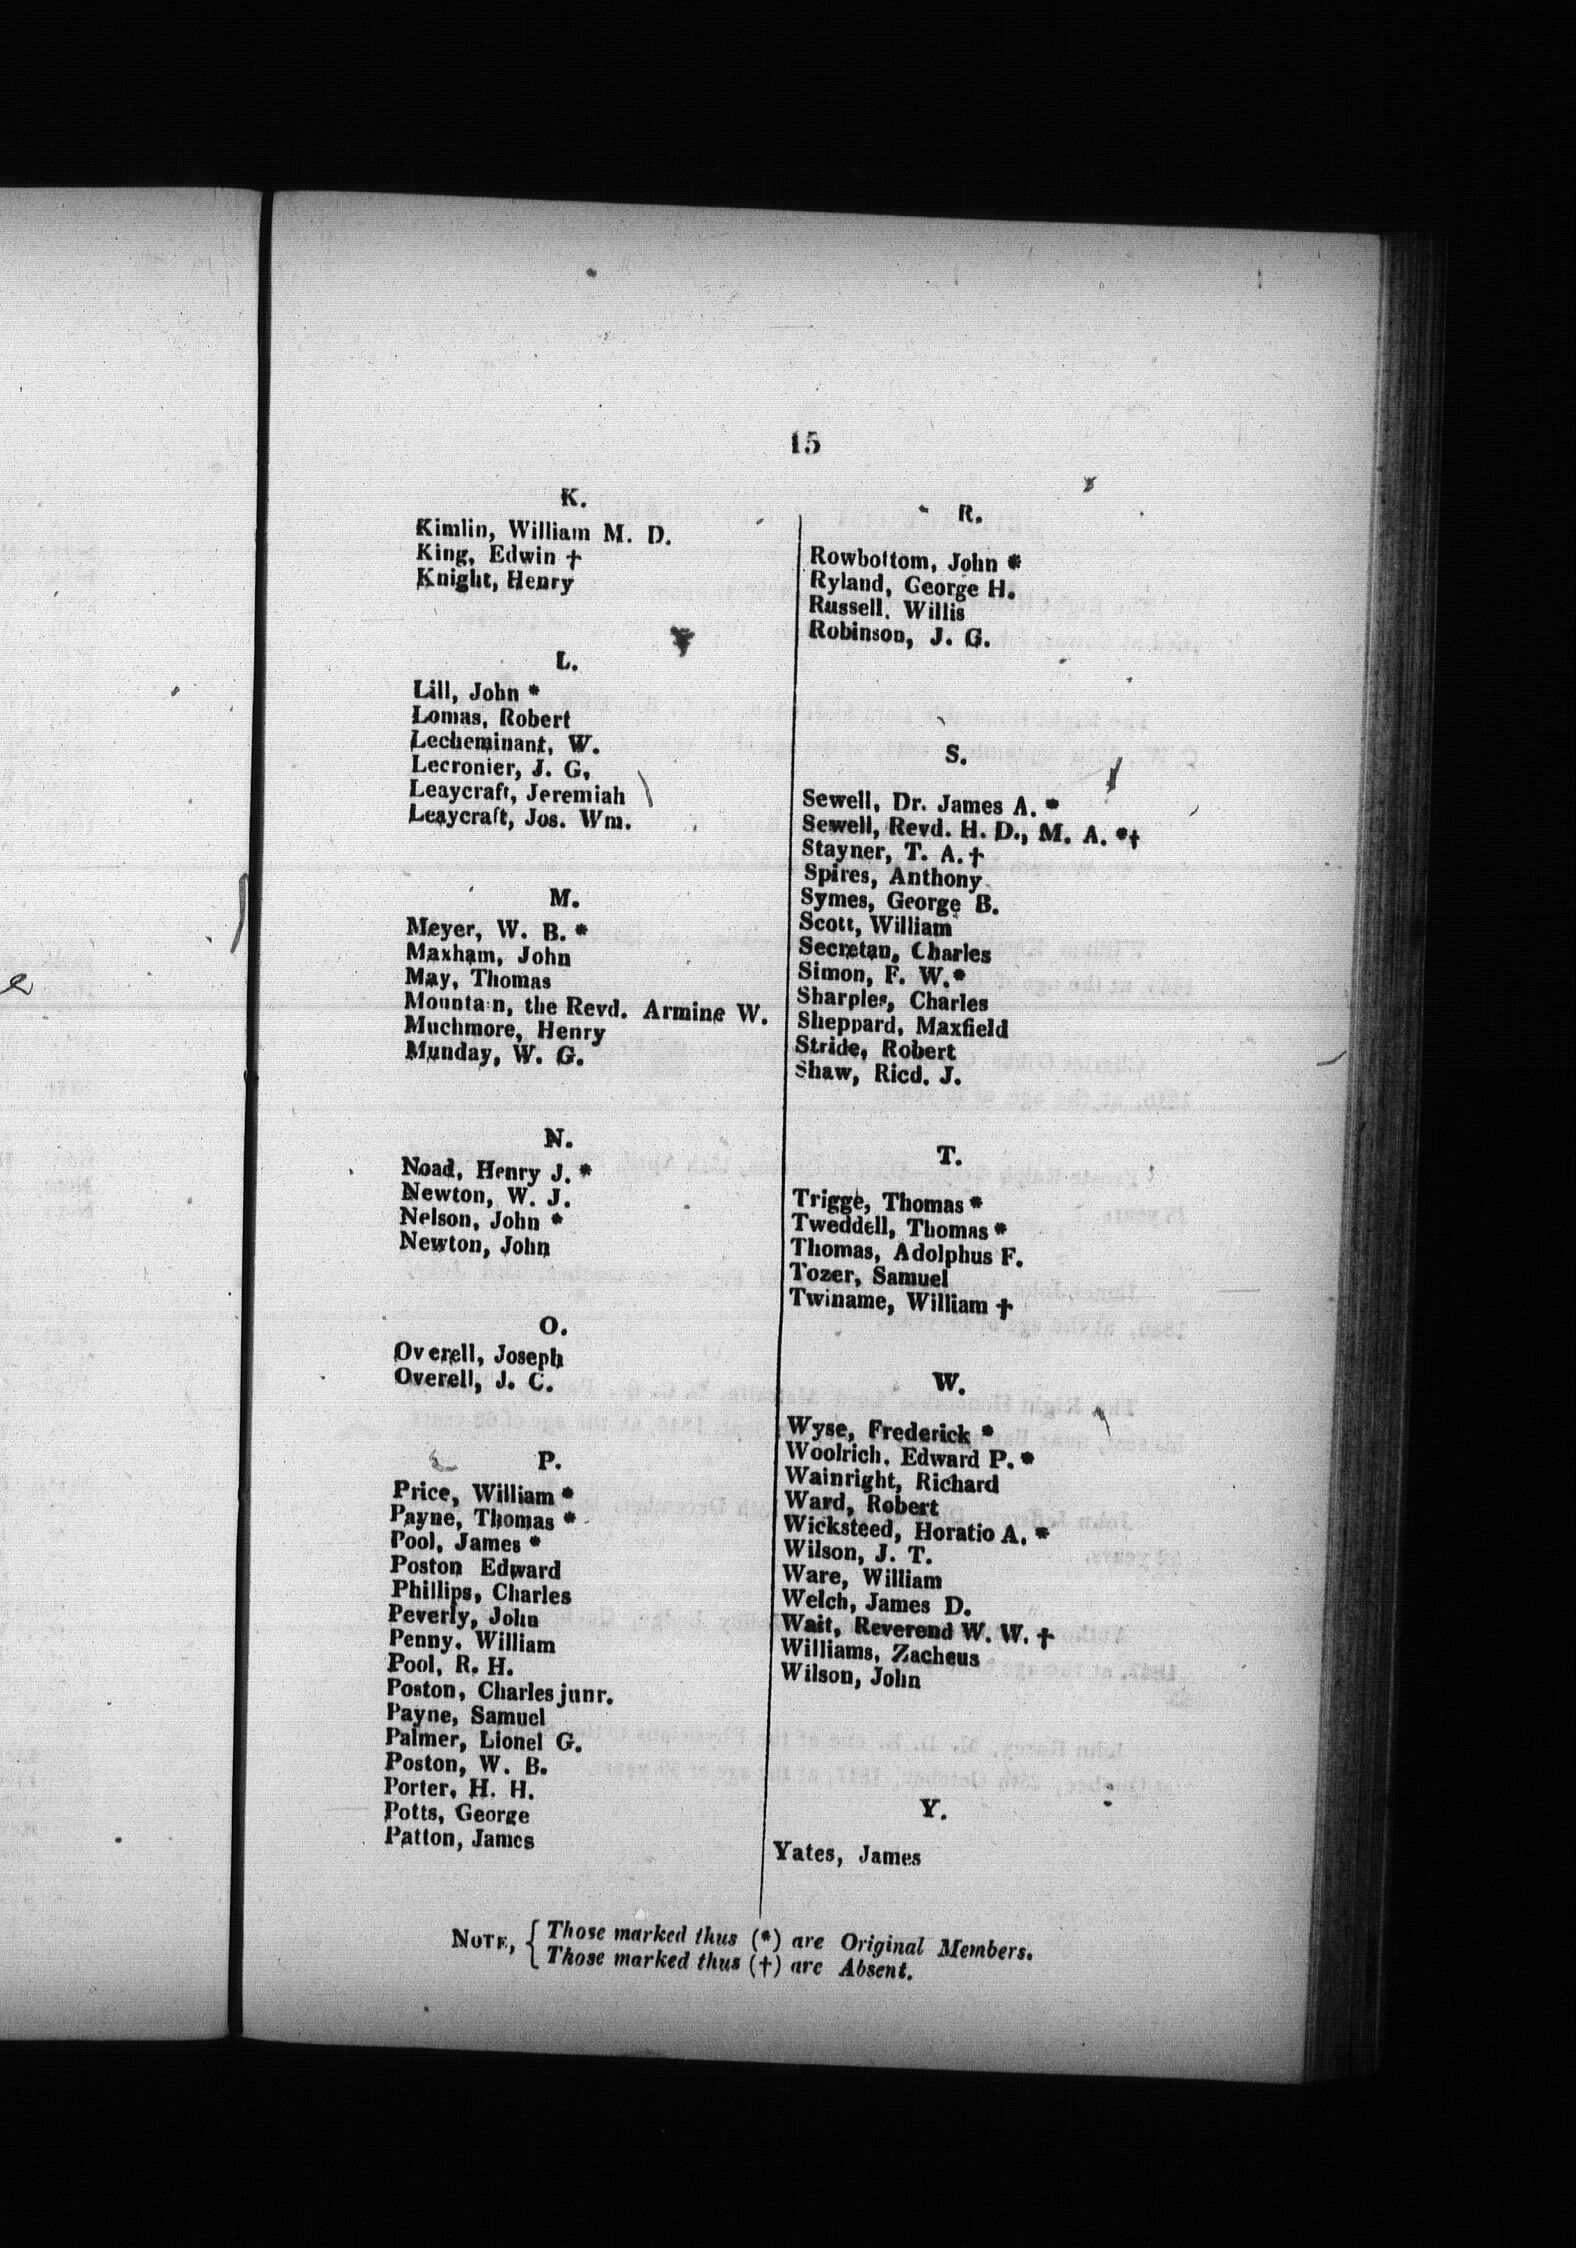 15
K.
Kimlin, William M. D.
King, Edwin †
Knight, Henry
L.
Lill, John *
Lomas, Robert
Lecheminant, W.
Lecronier, J. G,
Leaycraft, Jeremiah
Leaycraft, Jos. Wm.
M.
Meyer, W. B. *
Maxham, John
May, Thomas
Mountain, the Revd. Armine W.
Muchmore, Henry
Munday, W. G.
N.
Noad, Henry J. *
Newton, W. J.
Nelson, John *
Newton, John
O.
Overell, Joseph
Overell, J. C.
P.
Price, William *
Payne, Thomas *
Pool, James *
Poston Edward
Phillips, Charles
Peverly, John
Penny. William
Pool, R. H.
Poston, Charles junr.
Payne, Samuel
Palmer, Lionel G.
Poston, W. B.
Porter, H. H.
Potts, George
Patton, James
R.
Rowbottom, John *
Ryland, George H.
Russell. Willis
Robinson, J. G.
S.
Sewell, Dr. James A. *
Sewell, Revd. H. D., M. A. *†
Stayner, T. A. †
Spires, Anthony
Symes, George B.
Scott, William
Secretan, Charles
Simon, F. W. *
Sharples, Charles
Sheppard, Maxfield
Stride, Robert
Shaw, Ricd. J.
T.
Trigge, Thomas *
Tweddell, Thomas *
Thomas, Adolphus F.
Tozer, Samuel
Twiname, William †
W.
Wyse, Frederick *
Woolrich. Edward P. *
Wainright, Richard
Ward, Robert
Wicksteed, Horatio A. *
Wilson, J. T.
Ware, William
Welch, James D.
Wait, Reverend W. W. †
Williams, Zacheus
Wilson, John
Y.
Yates, James
NOTE, { Those marked thus (*) are Original Members.
Those marked thus (†) are Absent.